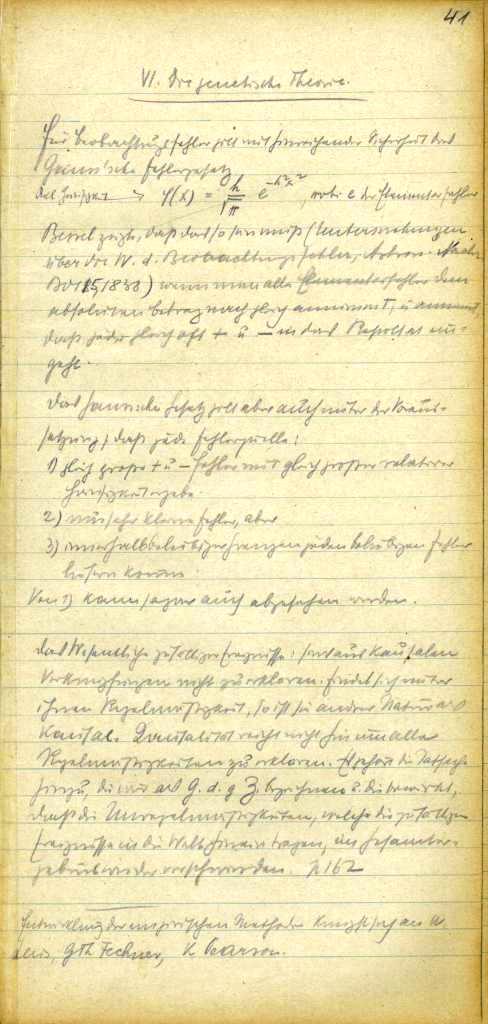 41
VI. Die genetische Theorie.
Für Beobachtungsfehler gilt mit hinreichender Sicherheit das
Gauss'sche Fehlergesetz
der Häufigkeit → φ(x) = h/√π e^{-h²x²}, der Elementarfehler
Bessel zeigte, daß das so sein muß (Untersuchungen
über die W. d. Beobachtungsfehler, Astron. Nachr.
Bd 15, 1838) wenn man alle Elementarfehler dem
absoluten Betrag nach gleich annimmt, u annimmt,
daß jeder gleich oft + u − in das Resultat ein-
geht.
Das Gaussische Gesetz gilt aber auch unter der Voraus-
setzung, daß jede Fehlerquelle:
1) gleich große + u − Fehler mit gleich großer relativer
Häufigkeit ergebe.
2) nur sehr kleine Fehler, aber
3) innerhalb beliebiger Grenzen jeden beliebigen Fehler
liefern kann
Von 1) kann sogar auch abgesehen werden.
Das Wesentliche zufälliger Ereignisse: sind aus kausalen
Verknüpfungen nicht zu erklären. Findet sich unter
ihnen Regelmäßigkeit, so ist sie andrer Natur als
kausal. Kausalität reicht nicht hin um alle
Regelmäßigkeiten zu erklären. Es die Tatsache
hinzu, die wir als G. d. g Z. bezeichnen u. die bewirkt,
daß die Unregelmäßigkeiten, welche die zufälligen
Ereignisse in die Welt hinein tragen, im Gesamter-
gebnis wieder verschwinden. p 162
Entwicklung der empirischen Methoden knüpft sich an
Lexis, G Th Fechner, K Pearson.